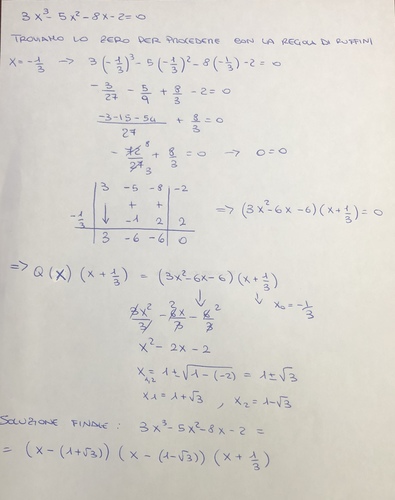 3x³ - 5x² - 8x - 2 = 0
TROVIAMO LO ZERO PER PROCEDERE CON LA REGOLA DI RUFFINI
x = -1/3 → 3(-1/3)³ - 5(-1/3)² - 8(-1/3) - 2 = 0
-3/27 - 5/9 + 8/3 - 2 = 0
(-3-15-54)/27 + 8/3 = 0
-72/27 8/3 + 8/3 = 0 → 0 = 0
3 -5 -8 -2
+ +
-1/3 ↓ -1 2 2 ⇒ (3x² - 6x - 6)(x + 1/3) = 0
3 -6 -6 0
⇒ Q(x)(x + 1/3) = (3x² - 6x - 6)(x + 1/3)
↓ ↓ x₀ = -1/3
3x²/3 - 6x/3 2 - 6/3 2
x² - 2x - 2
x₁,₂ = 1 ± √(1-(-2)) = 1 ± √3
x1 = 1 + √3 , x₂ = 1 - √3
SOLUZIONE FINALE : 3x³ - 5x² - 8x - 2 =
= (x - (1+√3)) (x - (1-√3)) (x + 1/3)